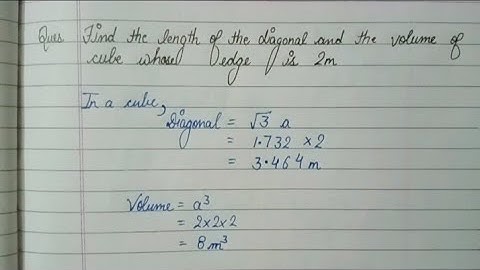 Ques Find the length of the diagonal and the volume of
cube whose edge is 2m
In a cube,
Diagonal = √3 a
= 1.732 × 2
= 3.464 m
Volume = a³
= 2×2×2
= 8m³